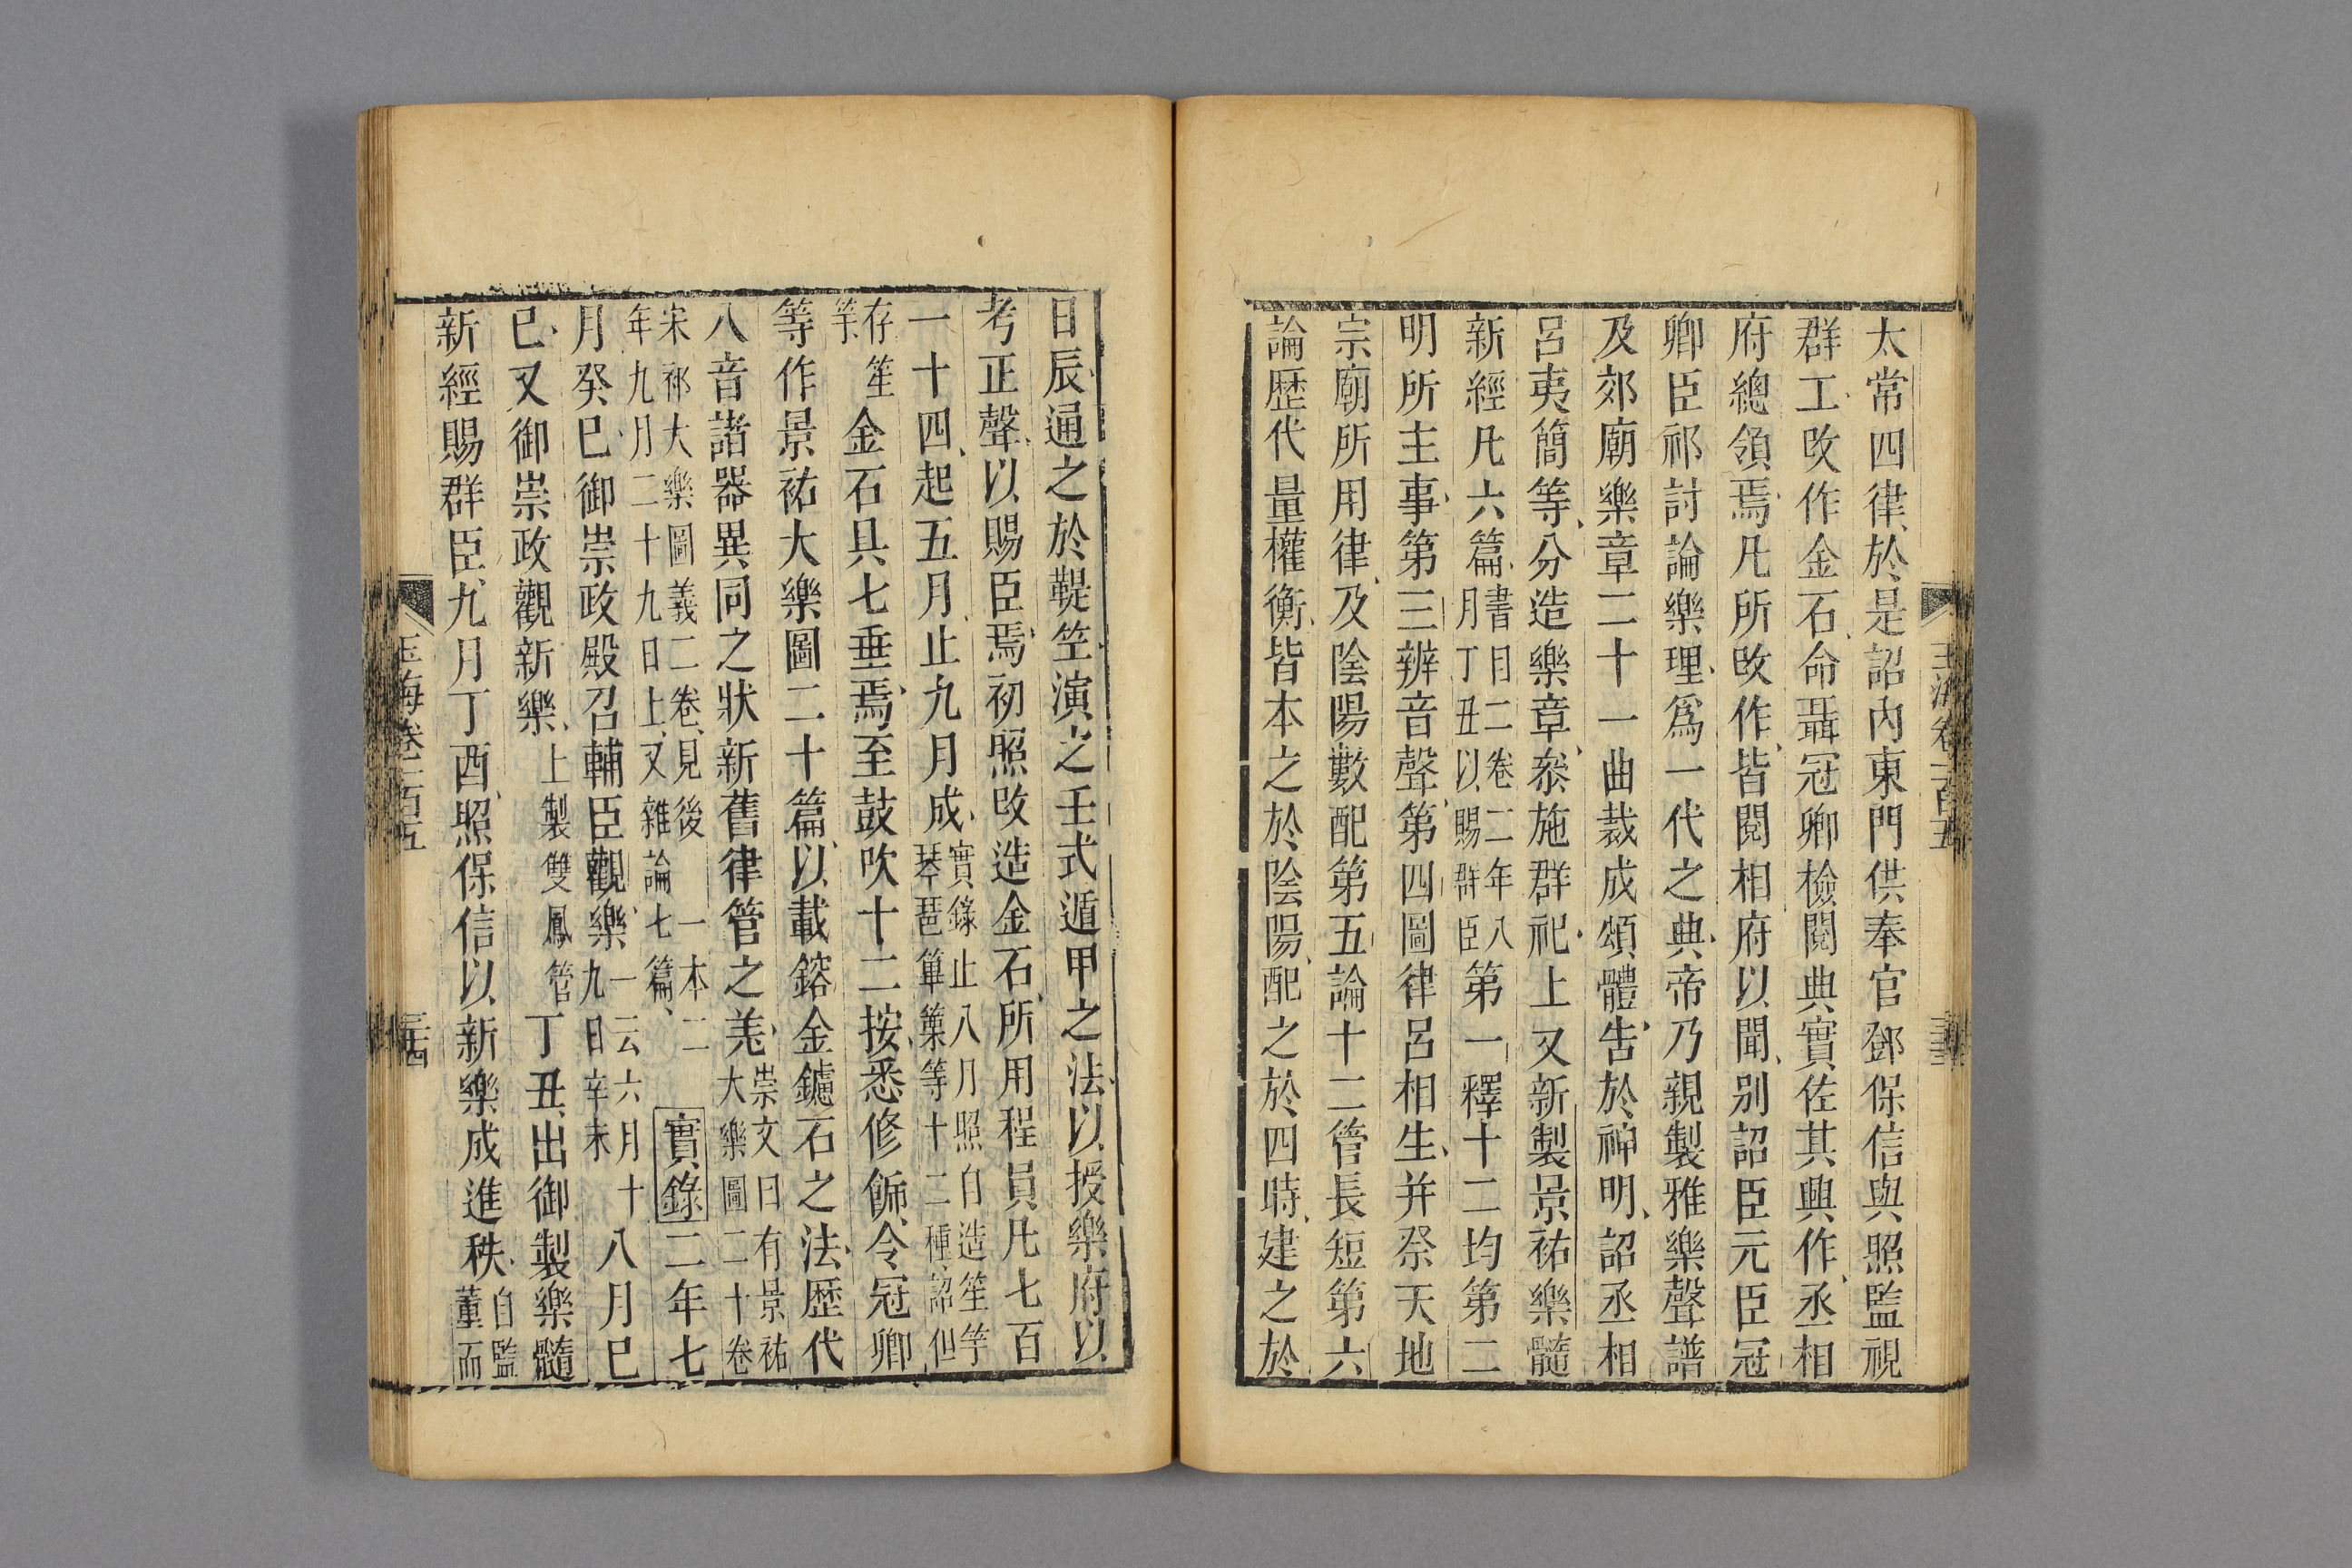 太常四律於是詔内東門供奉官鄧保信與照監視
群工改作金石命聶冠卿檢閱典實佐其興作丞相
府總領焉凡所改作皆閱相府以聞别詔臣元臣冠
卿臣祁討論樂理爲一代之典帝乃親製雅樂聲譜
及郊廟樂章二十一曲裁成頌體告於神明詔丞相
呂夷簡等分造樂章叅施群祀上又新製景祐樂髓
新經凡六篇書目二卷二年八月丁丑以賜群臣第一釋十二均第二
明所主事第三辨音聲第四圖律呂相生并祭天地
宗廟所用律及隂陽數配第五論十二管長短第六
論歷代量權衡皆本之於隂陽配之於四時建之於
日辰通之於鞮竺演之壬式遁甲之法以授樂府以
考正聲以賜臣焉初照改造金石所用程員凡七百
一十四起五月止九月成實錄止八月照自造笙竽琴琶篳篥等十二種詔但
存笙竽金石具七垂焉至鼓吹十二按悉修飾令冠卿
等作景祐大樂圖二十篇以載鎔金鑪石之法歷代
八音諸器異同之狀新舊律管之差崇文目有景祐大樂圖二十卷
宋祁大樂圖義二卷見後一本二年九月二十九日上又雜論七篇實錄二年七
月癸巳御崇政殿召輔臣觀樂一云六月十九日辛未八月巳
巳又御崇政觀新樂上製雙鳳管丁丑出御製樂髓
新經賜群臣九月丁酉照保信以新樂成進秩自監董而
玉海卷一百五
玉海卷一百五